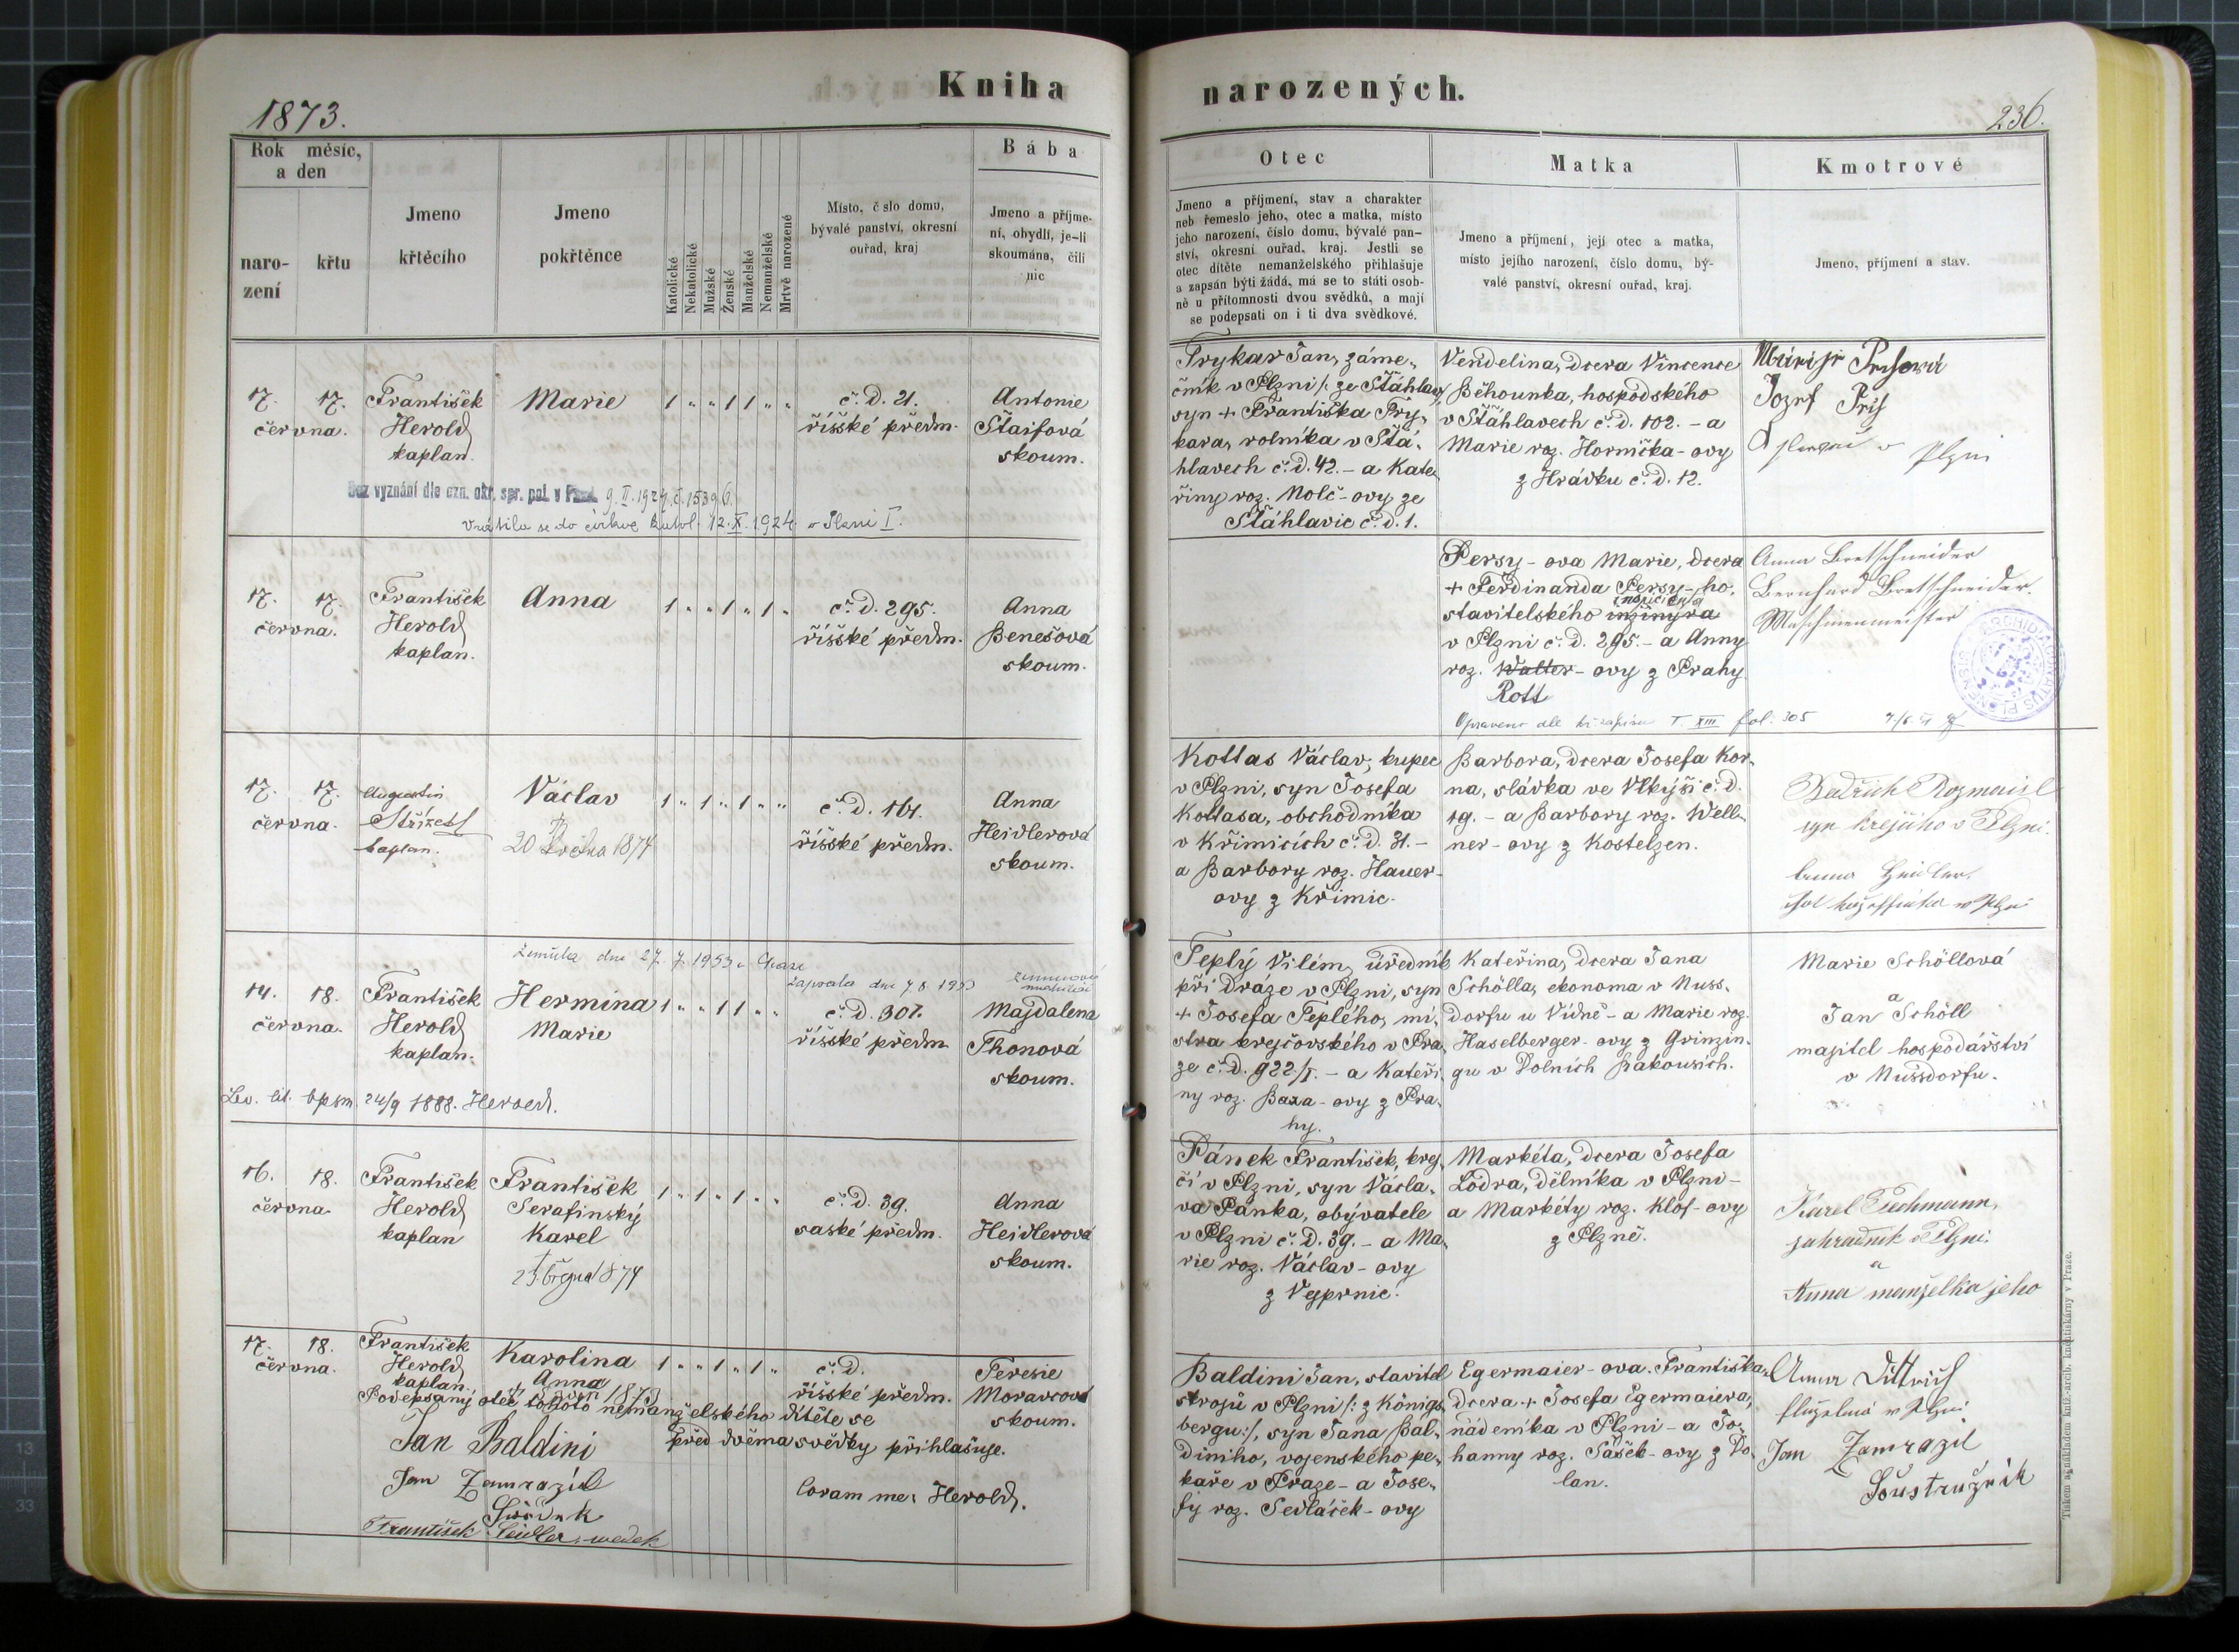 Kniha
narozených.
1873.
236.
Rok měsíc,
a den
naro-
zení
křtu
Jmeno
křtěcího
Jmeno
pokřtěnce
Katolické
Nekatolické
Mužské
Ženské
Manželské
Nemanželské
Mrtvě narozené
Místo, č slo domu,
bývalé panství, okresní
ouřad, kraj
Bába
Jmeno a příjme-
ní, obydlí, je-li
skoumána, čili
nic
Otec
Jmeno a příjmení, stav a charakter
neb řemeslo jeho, otec a matka, místo
jeho narození, číslo domu, bývalé pan-
ství, okresní ouřad, kraj. Jestli se
otec dítěte nemanželského přihlašuje
a zapsán býti žádá, má se to státi osob-
ně u přítomnosti dvou svědků, a mají
se podepsati on i ti dva svědkové.
Matka
Jmeno a příjmení, její otec a matka,
místo jejího narození, číslo domu, bý-
valé panství, okresní ouřad, kraj.
Kmotrové
Jmeno, příjmení a stav.
17. 17.
června.
František
Herold
kaplan.
Marie
1 " " 1 1 " "
č. d. 21.
říšské předm.
Antonie
Štaifová
skoum.
Bez vyznání dle ozn. okr. spr. pol. v 9. II. 1924. č. 15396.
Vrátila se do církve katol. 12. X. 1924 v Plzni I.
Prykar Jan, záme-
čník v Plzni /: ze Šťáhlav,
syn + Františka Pry-
kara, rolníka v Šťá-
hlavech č. d. 42. - a Kate-
řiny roz. Molč-ovy ze
Šťáhlavic č. d. 1.
Vendelina, dcera Vincence
Běhounka, hospodského
v Šťáhlavech č. d. 102. - a
Marie roz. Hornička-ovy
z Hrádku č. d. 12.
Jozef
v Plzni
17. 17.
června.
František
Herold
kaplan.
Anna
1 " " 1 " 1 "
č. d. 295.
říšské předm.
Anna
Benešová
skoum.
Persy-ova Marie, dcera
+ Ferdinanda Persy-ho,
stavitelského inžinýra
v Plzni č. d. 295. - a Anny
roz. Walter-ovy z Prahy
Rott
Opraveno dle T. XIII fol. 305
Anna Bretschneider
Bernhard Bretschneider.
Maschinenmeister
17. 17.
června.
Augustin
Střízek
kaplan.
Václav
†
20 května 1874
1 " 1 " 1 " "
č. d. 161.
říšské předm.
Anna
Heidlerová
skoum.
Kottas Václav, kupec
v Plzni, syn Josefa
Kottasa, obchodníka
v Křimicích č. d. 31. -
a Barbory roz. Hauer-
ovy z Křimic.
Barbora, dcera Josefa Kor-
na, sládka ve Vlkýši č. d.
19. - a Barbory roz. Well-
ner-ovy z Kostelzen.
Rozmaisl
syn krejčího v Plzni.
Zemřela dne 27. 7. 1953 v
14. 18.
června.
František
Herold
kaplan.
Hermina
Marie
1 " " 1 1 " "
č. d. 307.
říšské předm
Magdalena
Thonová
skoum.
24/9 1888. Herold.
Teplý Vilém, úředník
při dráze v Plzni, syn
+ Josefa Teplého, mi-
stra krejčovského v Pra-
ze č. d. 922/I. - a Kateři-
ny roz. Baxa-ovy z Pra-
hy.
Kateřina, dcera Jana
Schölla, ekonoma v Nuss-
dorfu u Vídně - a Marie roz.
Haselberger-ovy z Grinzin-
gu v Dolních Rakousích.
Marie Schöllová
a
Jan Schöll
majitel hospodářství
v Nussdorfu.
16. 18.
června.
František
Herold
kaplan
František
Serafinský
Karel
†
1874
1 " 1 " 1 " "
č. d. 39.
saské předm.
Anna
Heidlerová
skoum.
Pánek František, krej-
čí v Plzni, syn Václa-
va Pánka, obývatele
v Plzni č. d. 39. - a Ma-
rie roz. Václav-ovy
z Vejprnic.
Markéta, dcera Josefa
Lodra, dělníka v Plzni -
a Markéty roz. Klos-ovy
z Plzně.
Karel Tuchmann,
zahradník v Plzni.
a
Anna manželka jeho
17. 18.
června.
František
Herold
kaplan.
Karolina
Anna
1 " " 1 " 1 "
č. d.
říšské předm.
Teresie
Moravcová
skoum.
Podepsaný otec tohoto nemanželského dítěte se
před dvěma svědky přihlašuje.
Jan Baldini
Jan Zamrazil
Svědek
František Seidler, svedek
Coram me: Herold.
Baldini Jan, stavitel
strojů v Plzni /: z Königs-
bergu :/, syn Jana Bal-
diniho, vojenského pe-
kaře v Praze - a Jose-
fy roz. Sedláček-ovy
Egermaier-ova Františka,
dcera + Josefa Egermaiera,
nádeníka v Plzni - a Jo-
hanny roz. Sašek-ovy z Do-
lan.
Anna Dittrich
Jan Zamrazil
Soustružník
Tiskem a nákladem kníž.-arcib. knihtiskárny v Praze.